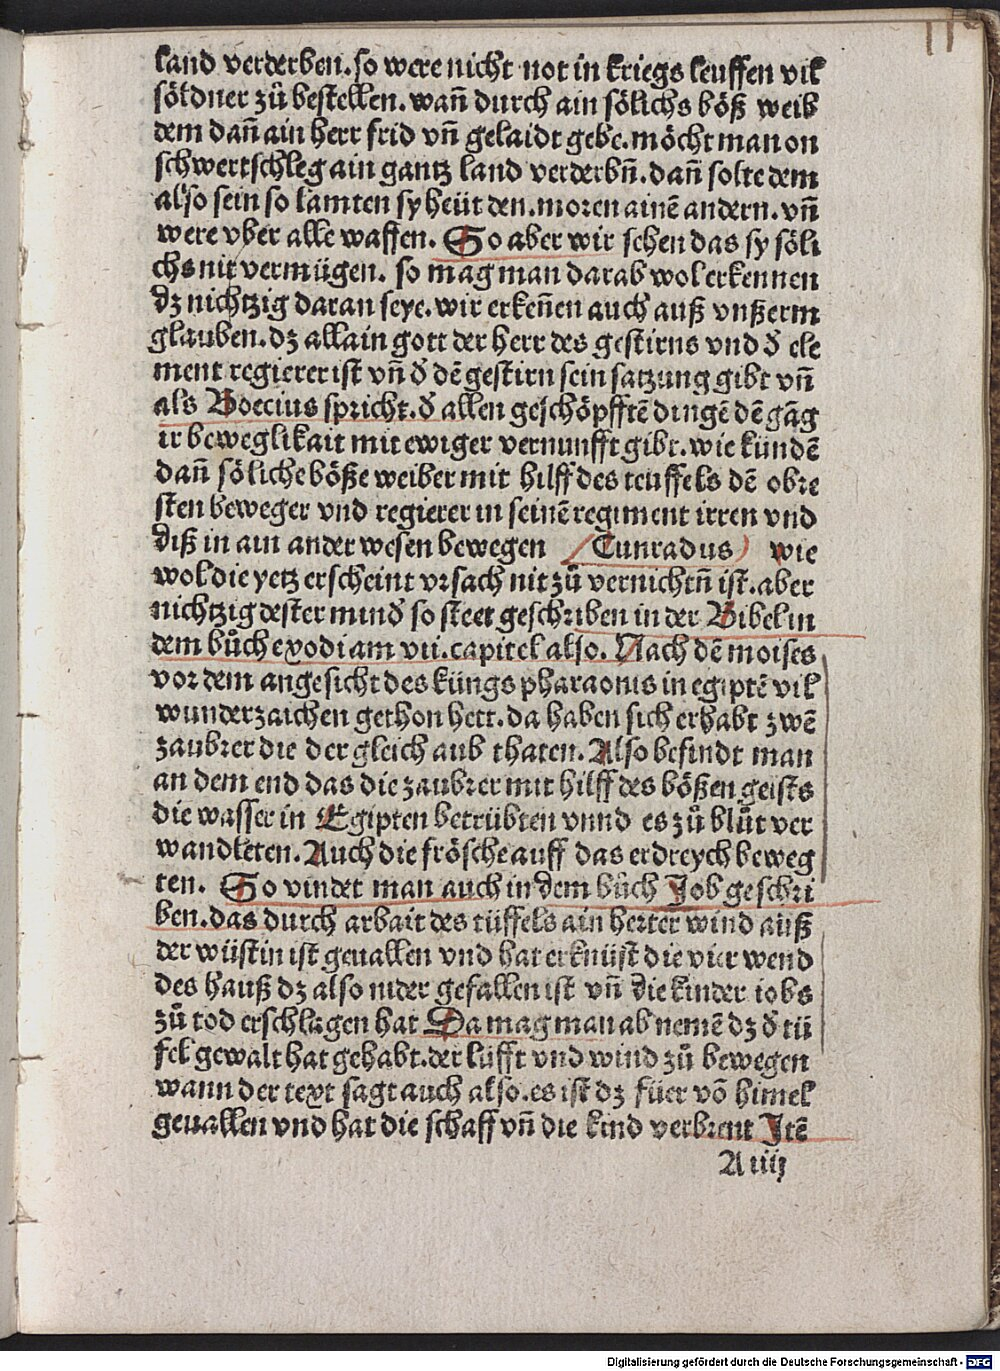 land verderben. so were nicht not in kriegs leuffen vil
söldner zů bestellen. wañ durch ain sölichs böß weib
dem dañ ain herr frid vñ gelaidt gebe. möcht man on
schwertschleg ain gantz land verderbñ. dañ solte dem
also sein so lamten sy heüt den. moren ainē andern. vñ
were vber alle waffen. So aber wir sehen das sy söli
chs nit vermügen. so mag man darab wol erkennen
dz nichtzig daran seye. wir erkeñen auch auß vnßerm
glauben. dz allain gott der herr des gestirns vnd ð ele
ment regierer ist vñ ð dē gestirn sein satzung gibt vñ
als Boecius spricht. ð allen geschöpfftē dingē dē gāg
ir beweglikait mit ewiger vernunfft gibt. wie kündē
dañ söliche böße weiber mit hilff des teuffels dē obre
sten beweger vnd regierer in seinē regiment irren vnd
diß in ain ander wesen bewegen Cunradus wie
wol die yetz erscheint vrsach nit zů vernichtñ ist. aber
nichtzig dester minð so steet geschriben in der Bibel in
dem bůch exodi am vii. capitel also. Nach dē moises
vor dem angesicht des küngs pharaonis in egiptē vil
wunderzaichen gethon hett. da haben sich erhabt zwē
zaubrer die der gleich aub thaten. Also befindt man
an dem end das die zaubrer mit hilff des bößen geists
die wasser in Egipten betrübten vnnd es zů blůt ver
wandleten. Auch die frösche auff das erdreych beweg
ten. So vindet man auch in dem bůch Job geschri
ben. das durch arbait des tüffels ain herter wind auß
der wüstin ist geuallen vnd hat erknüst die vier wend
des hauß dz also nider gefallen ist vñ die kinder iobs
zů tod erschlagen hat Da mag man ab nemē dz ð tü
fel gewalt hat gehabt. der lüfft vnd wind zů bewegen
wann der text sagt auch also. es ist dz füer vō himel
geuallen vnd hat die schaff vñ die kind verbrent Jtē
A iiij
Digitalisierung gefördert durch die Deutsche Forschungsgemeinschaft - DFG